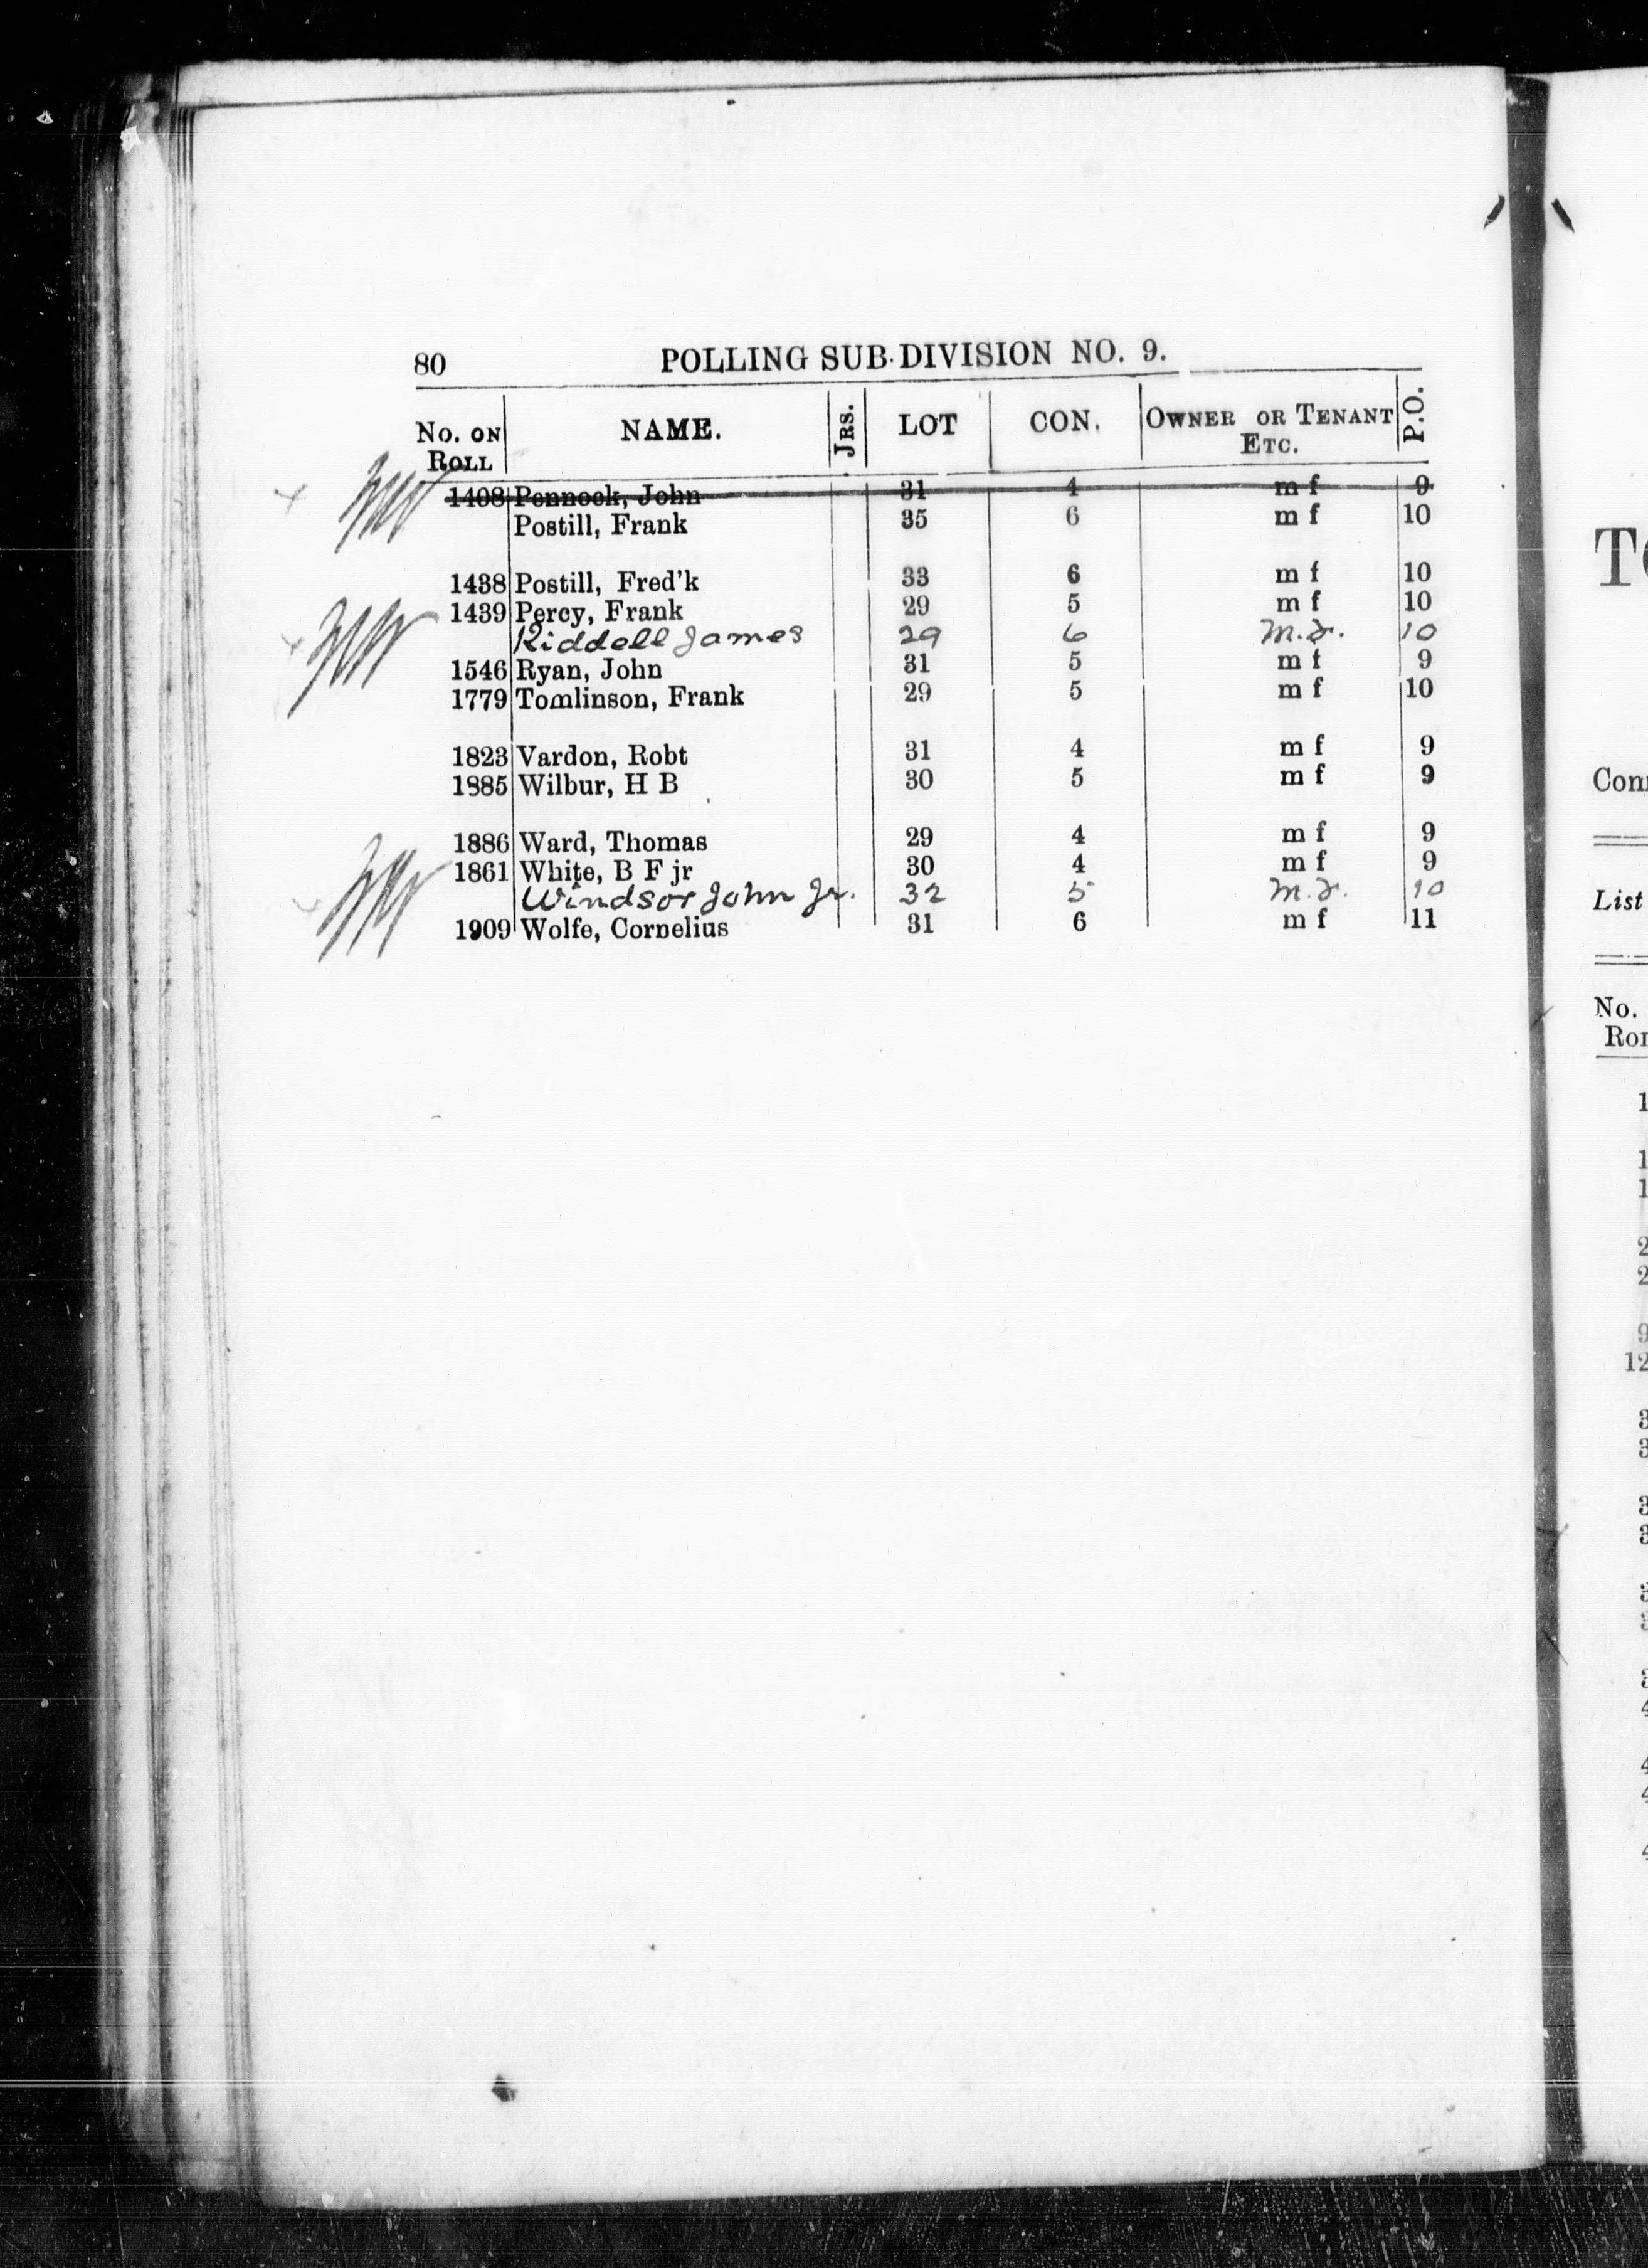 80 POLLING SUB-DIVISION NO. 9.
No. on Roll NAME. Jrs. LOT CON. Owner or Tenant Etc. P.O.
1408 Pennock, John 31 4 m f 9
Postill, Frank 35 6 m f 10
1438 Postill, Fred'k 33 6 m f 10
1439 Percy, Frank 29 5 m f 10
Riddell James 29 6 M.F. 10
1546 Ryan, John 31 5 m f 9
1779 Tomlinson, Frank 29 5 m f 10
1823 Vardon, Robt 31 4 m f 9
1885 Wilbur, H B 30 5 m f 9
1886 Ward, Thomas 29 4 m f 9
1861 White, B F jr 30 4 m f 9
Windsor John Jr. 32 5 M.F. 10
1909 Wolfe, Cornelius 31 6 m f 11
Con
List
No.